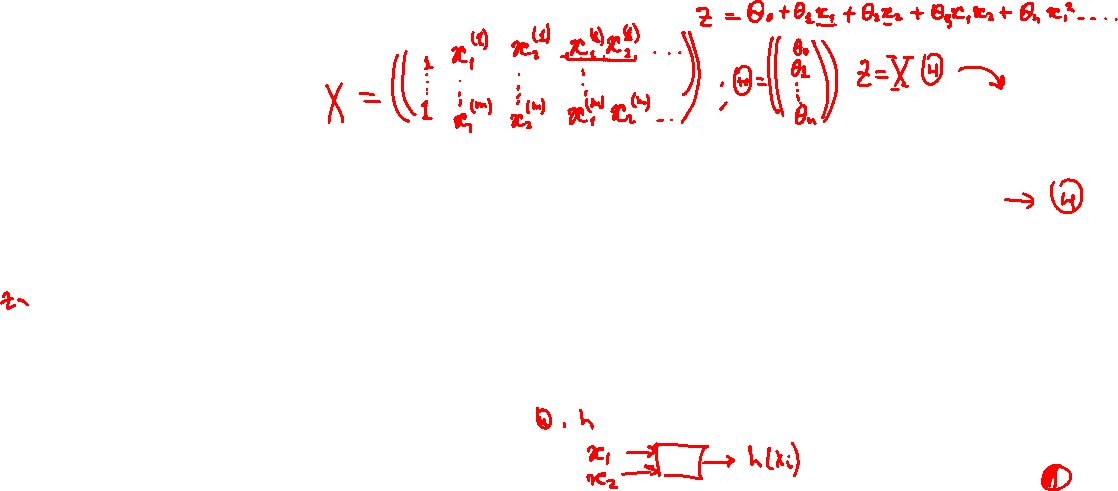 z = θ₀ + θ₁x₁ + θ₂x₂ + θ₃x₁x₂ + θ₄x₁² ....
X = ((1 x₁⁽¹⁾ x₂⁽¹⁾ x₁⁽¹⁾x₂⁽¹⁾ ...
⋮ ⋮ ⋮ ⋮
1 x₁⁽ᵐ⁾ x₂⁽ᵐ⁾ x₁⁽ᵐ⁾x₂⁽ᵐ⁾ ...)) ; Θ = ((θ₀ θ₁ ⋮ θₙ)) z = XΘ
→ Θ
z
Θ . h
x₁ → → h(xᵢ)
x₂ →
1